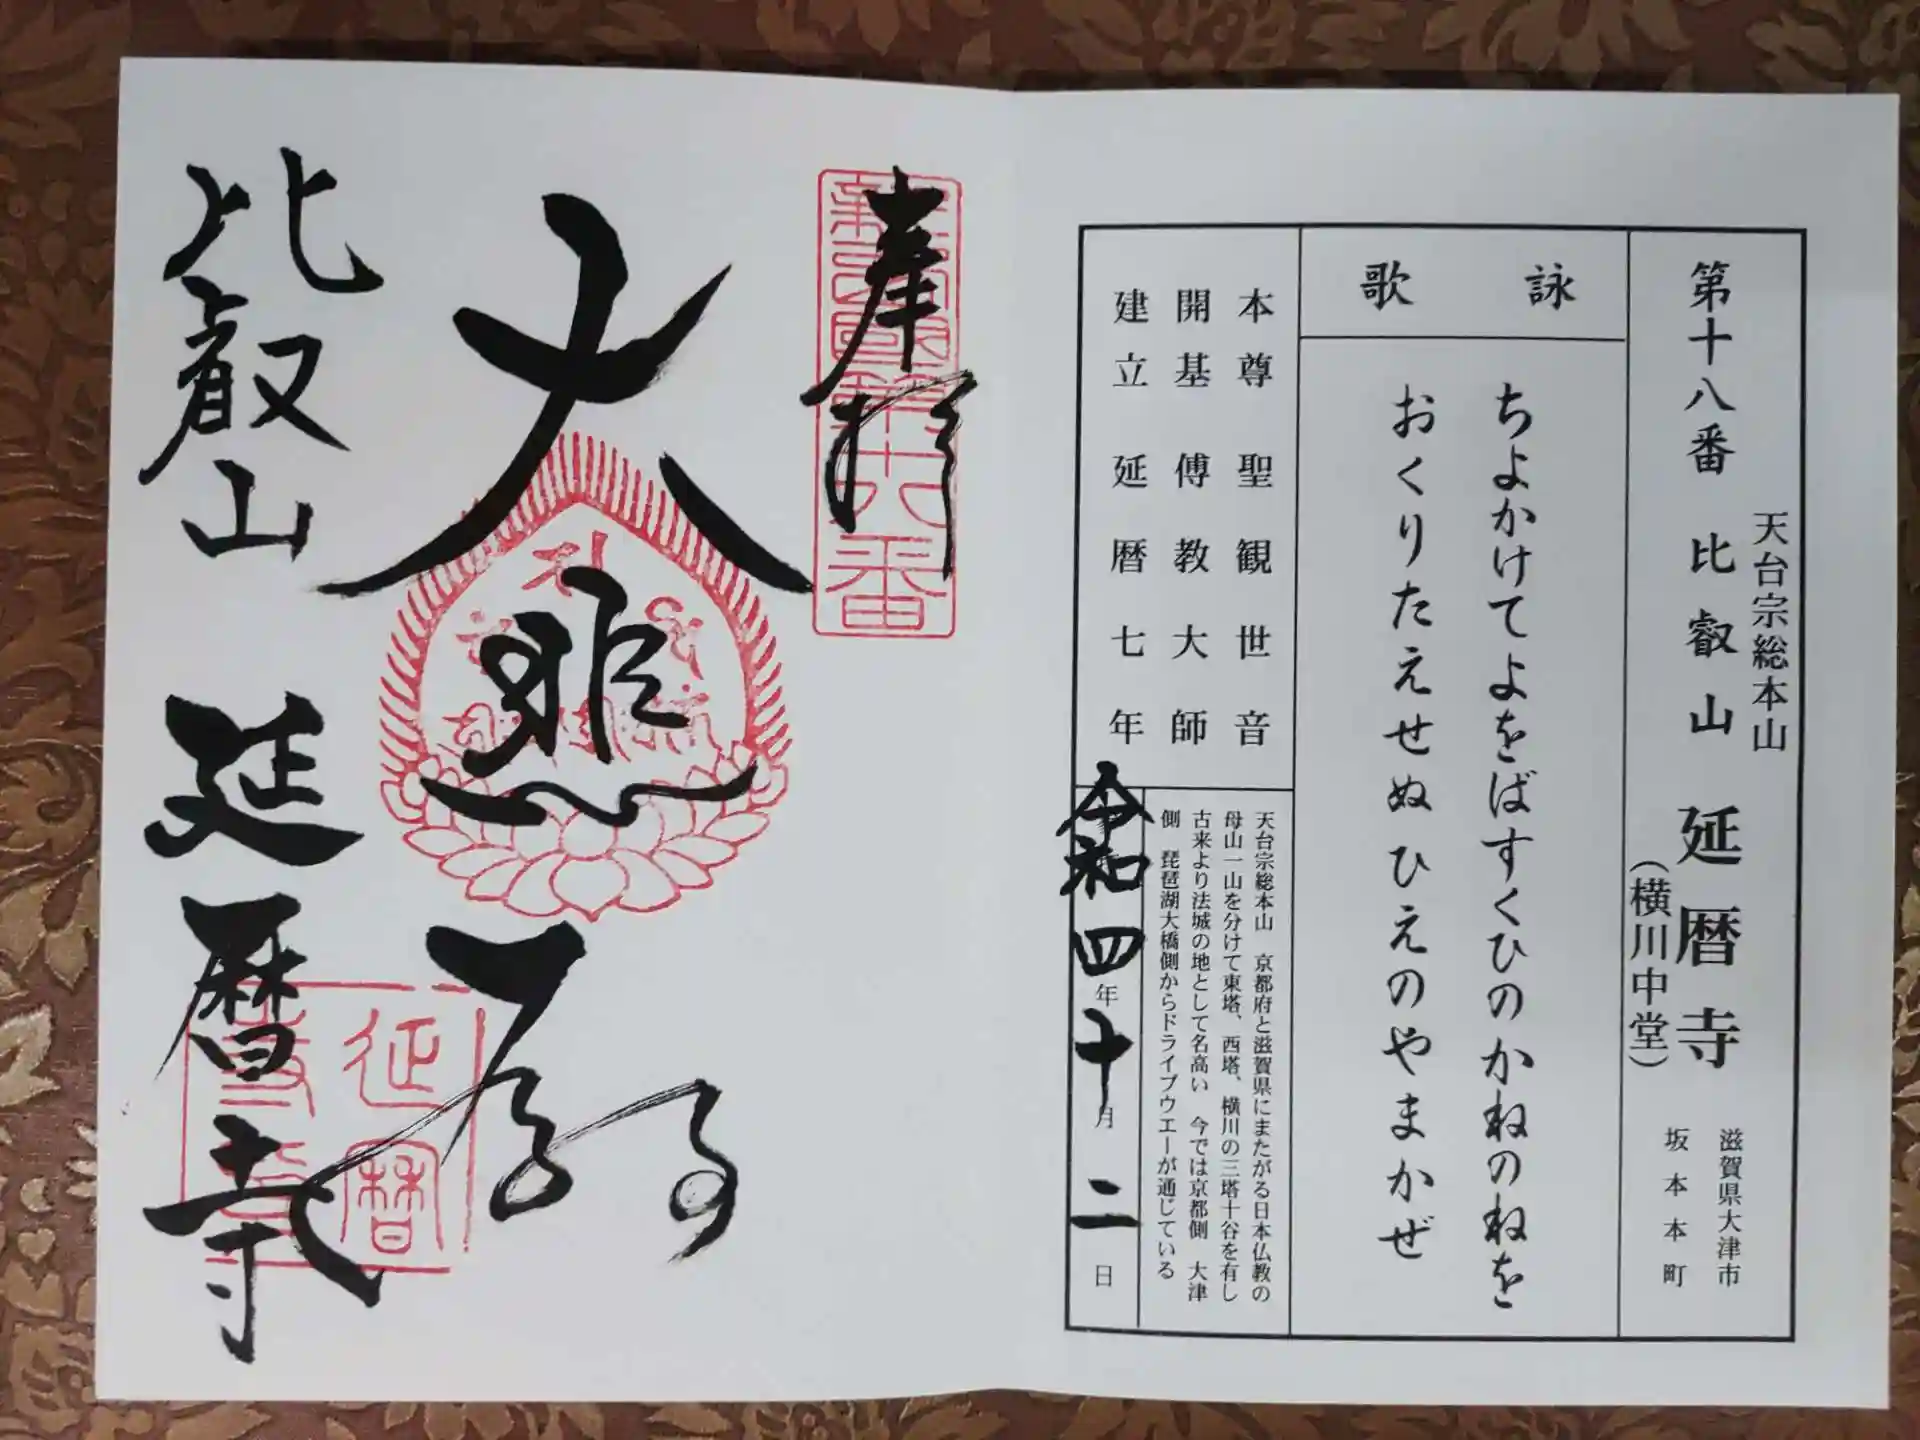 第十八番 比叡山 延暦寺
天台宗総本山
(横川中堂)
滋賀県大津市
坂本本町
詠歌
ちよかけてよをばすくひのかねのねを
おくりたえせぬひえのやまかぜ
本尊 聖観世音
開基 傳教大師
建立 延暦七年
天台宗総本山 京都府と滋賀県にまたがる日本仏教の
母山一山を分けて東塔、西塔、横川の三塔十谷を有し
古来より法城の地として名高い 今では京都側 大津
側 琵琶湖大橋側からドライブウエーが通じている
令和四年十月二日
奉拝
大悲殿
比叡山 延暦寺